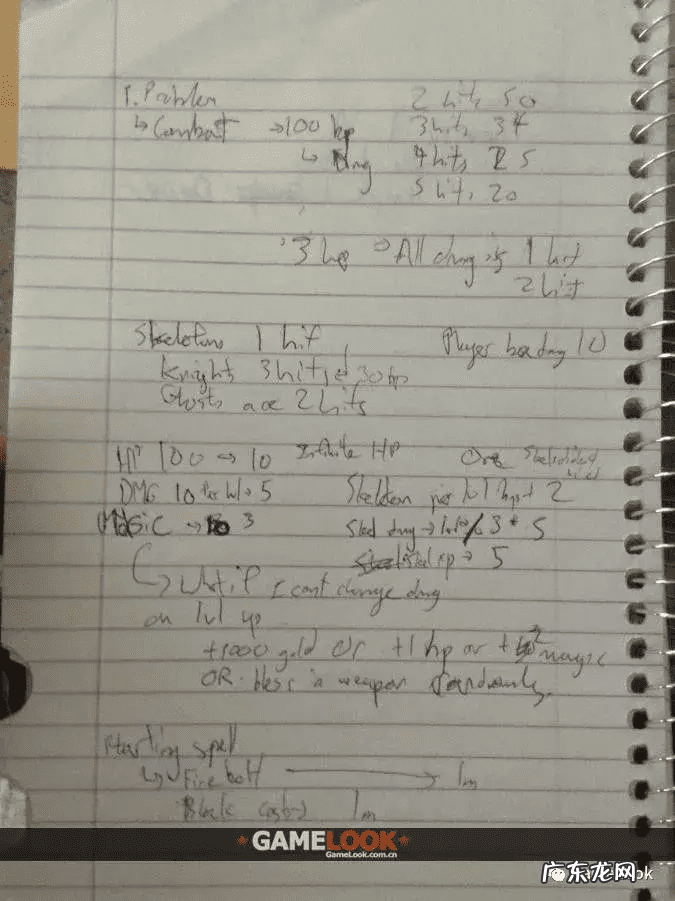 1. Problem 2 hits 50
↳ Combat → 100 hp 3 hits 34
↳ Dmg 4 hits 25
5 hits 20
3 hp ⇒ All dmg is 1 hit
2 hit
Skeletons 1 hit Player base dmg 10
Knights 3 hits 30 hp
Ghosts are 2 hits
HP 100 → 10 Infinite HP One
DMG 10 per lvl → 5 Skeleton per lvl hp + 2
Magic → 3 Skel dmg → lvl % 3 * 5
Skel xp → 5
↳ What if I cant change dmg
on lvl up
+1000 gold or +1 hp or +2 magic
OR bless a weapon randomly
Starting spell
↳ Fire bolt → 1m
1m
GAMELOOK
GameLook.com.cn
广东龙网